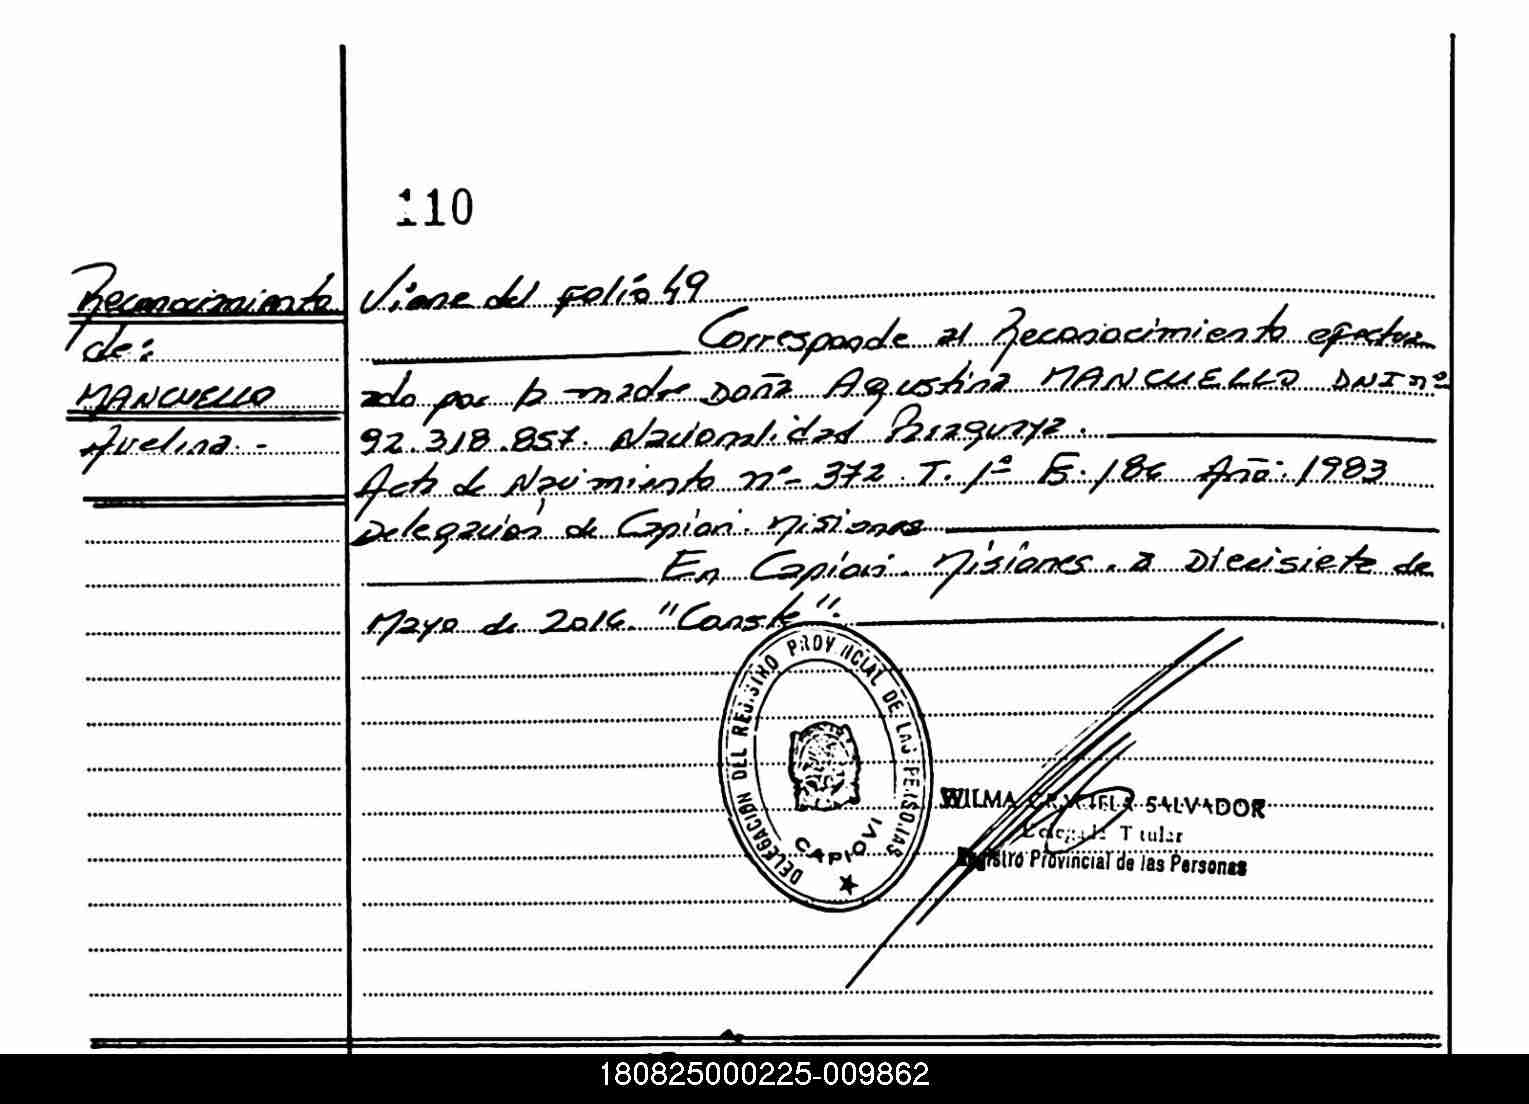 110
Reconocimiento
de:
MANCUELLO
Avelina.-
Viene del folio 49
Corresponde al Reconocimiento efectua
ado por la madre Doña Agustina MANCUELLO DNI nº
92.318.857. Nacionalidad Paraguaya.
Acta de Nacimiento nº 372 T. 1º Fº. 186 Año: 1983
Delegación de Capiovi. Misiones
En Capiovi. Misiones. a Diecisiete de
Mayo de 2016. "Conste".
DELEGACION DEL REGISTRO PROVINCIAL DE LAS PERSONAS
CAPIOVI
WILMA GRACIELA SALVADOR
Delegada Titular
Registro Provincial de las Personas
180825000225-009862